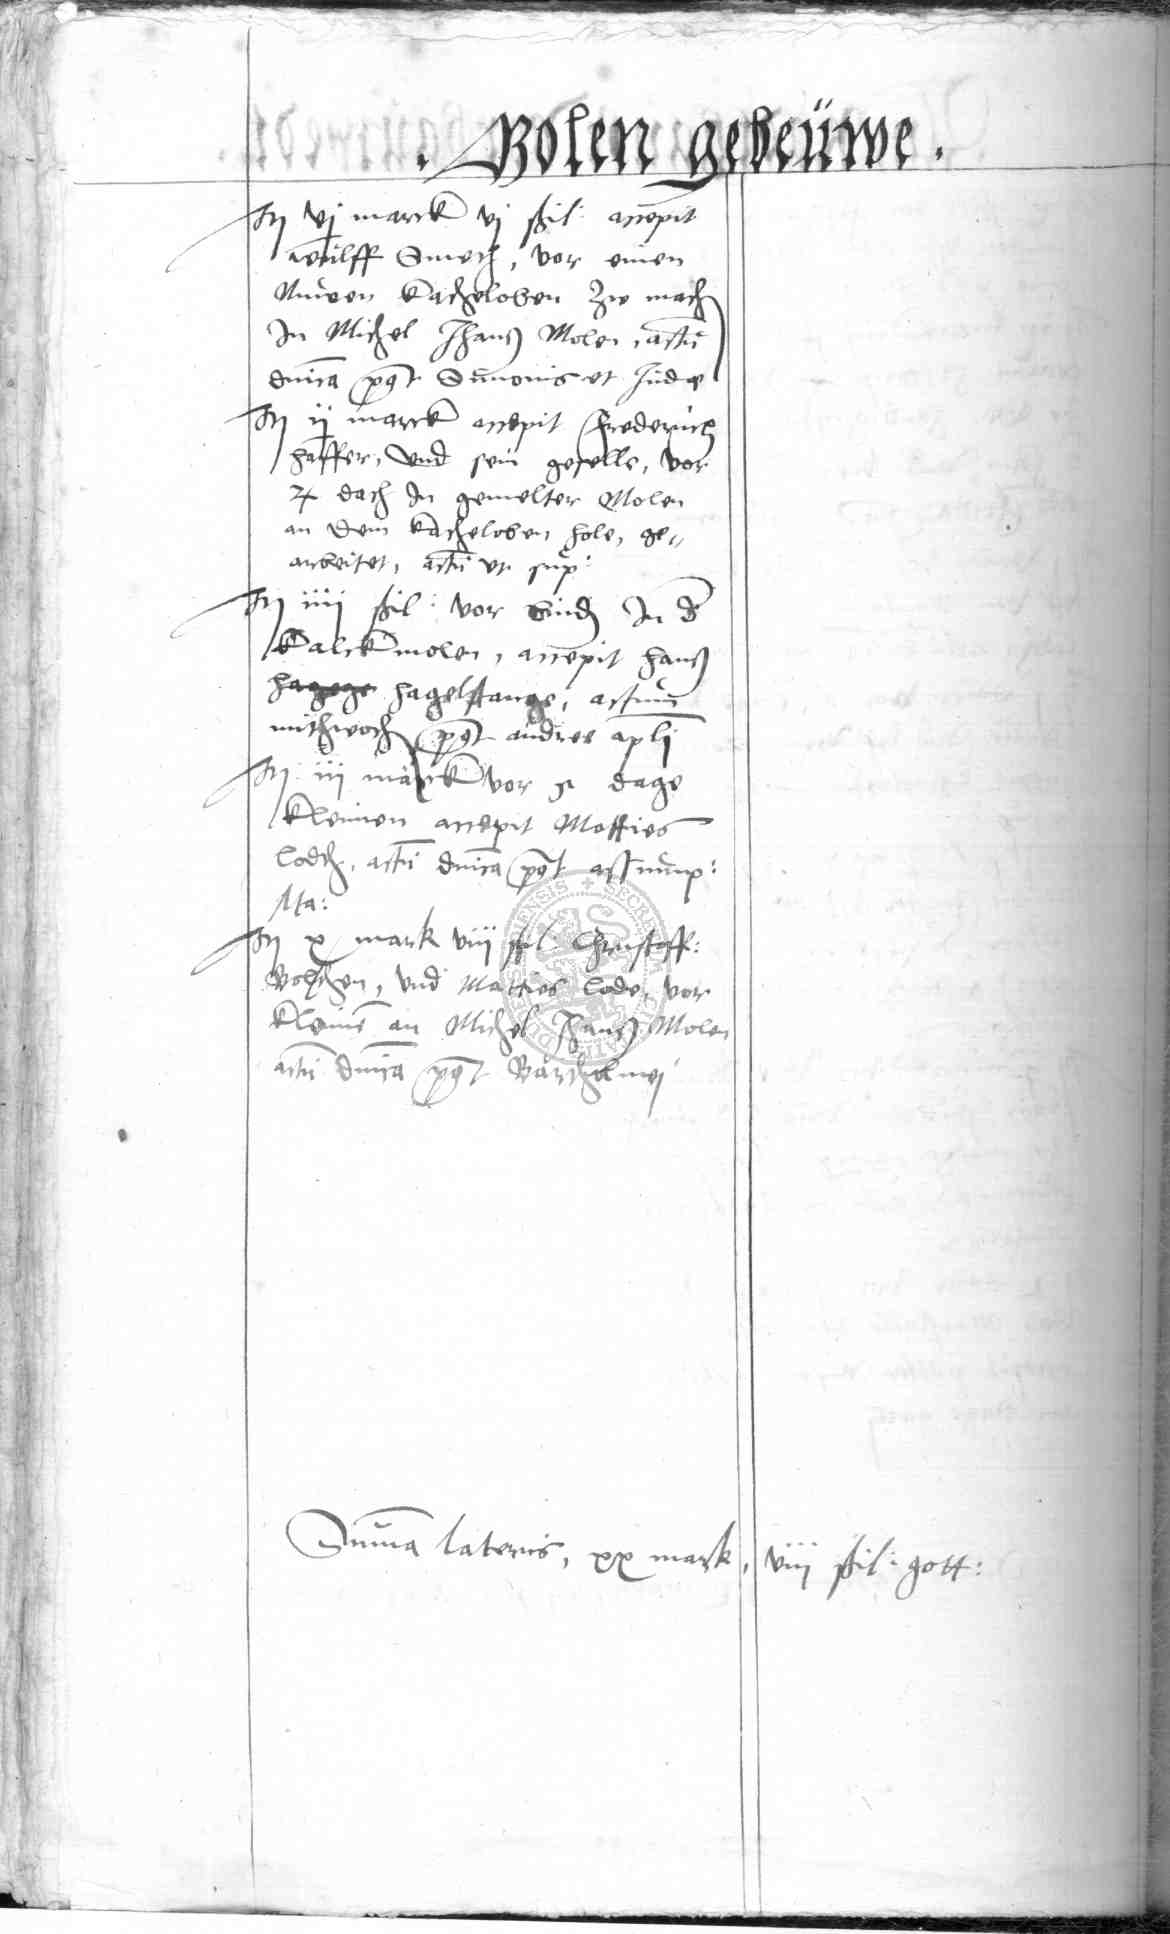 . Molen gebeüwe .
It vj marck vj ßil: accepit
wulff Smech, vor einen
Nuwen kacheloben zw mach
In Michel Jhanß Molen, actu
dnica post Simonis et Jude
It ij marck accepit Frederich
haffer, vnd sein geselle, vor
4 dach In gemelter Molen
an dem kacheloben hole, ge„
arbeitet, actu ut sup:
It iiij ßil: vor In d
kalckmolen, accepit hanß
hagelstange, actum
mithwoch post andree apli
It iij marck vor 9 dage
kleimen accepit Matties
Lodch, actu dnica post assump:
Ma:
It x mark viij ßil Christoff:
Bolschen, vnd Matties Lode, vor
kleime an Michel Jhanß Molen
actu dnica post Bartholmej
Suma lateris, xx mark, viij ßil: gott: